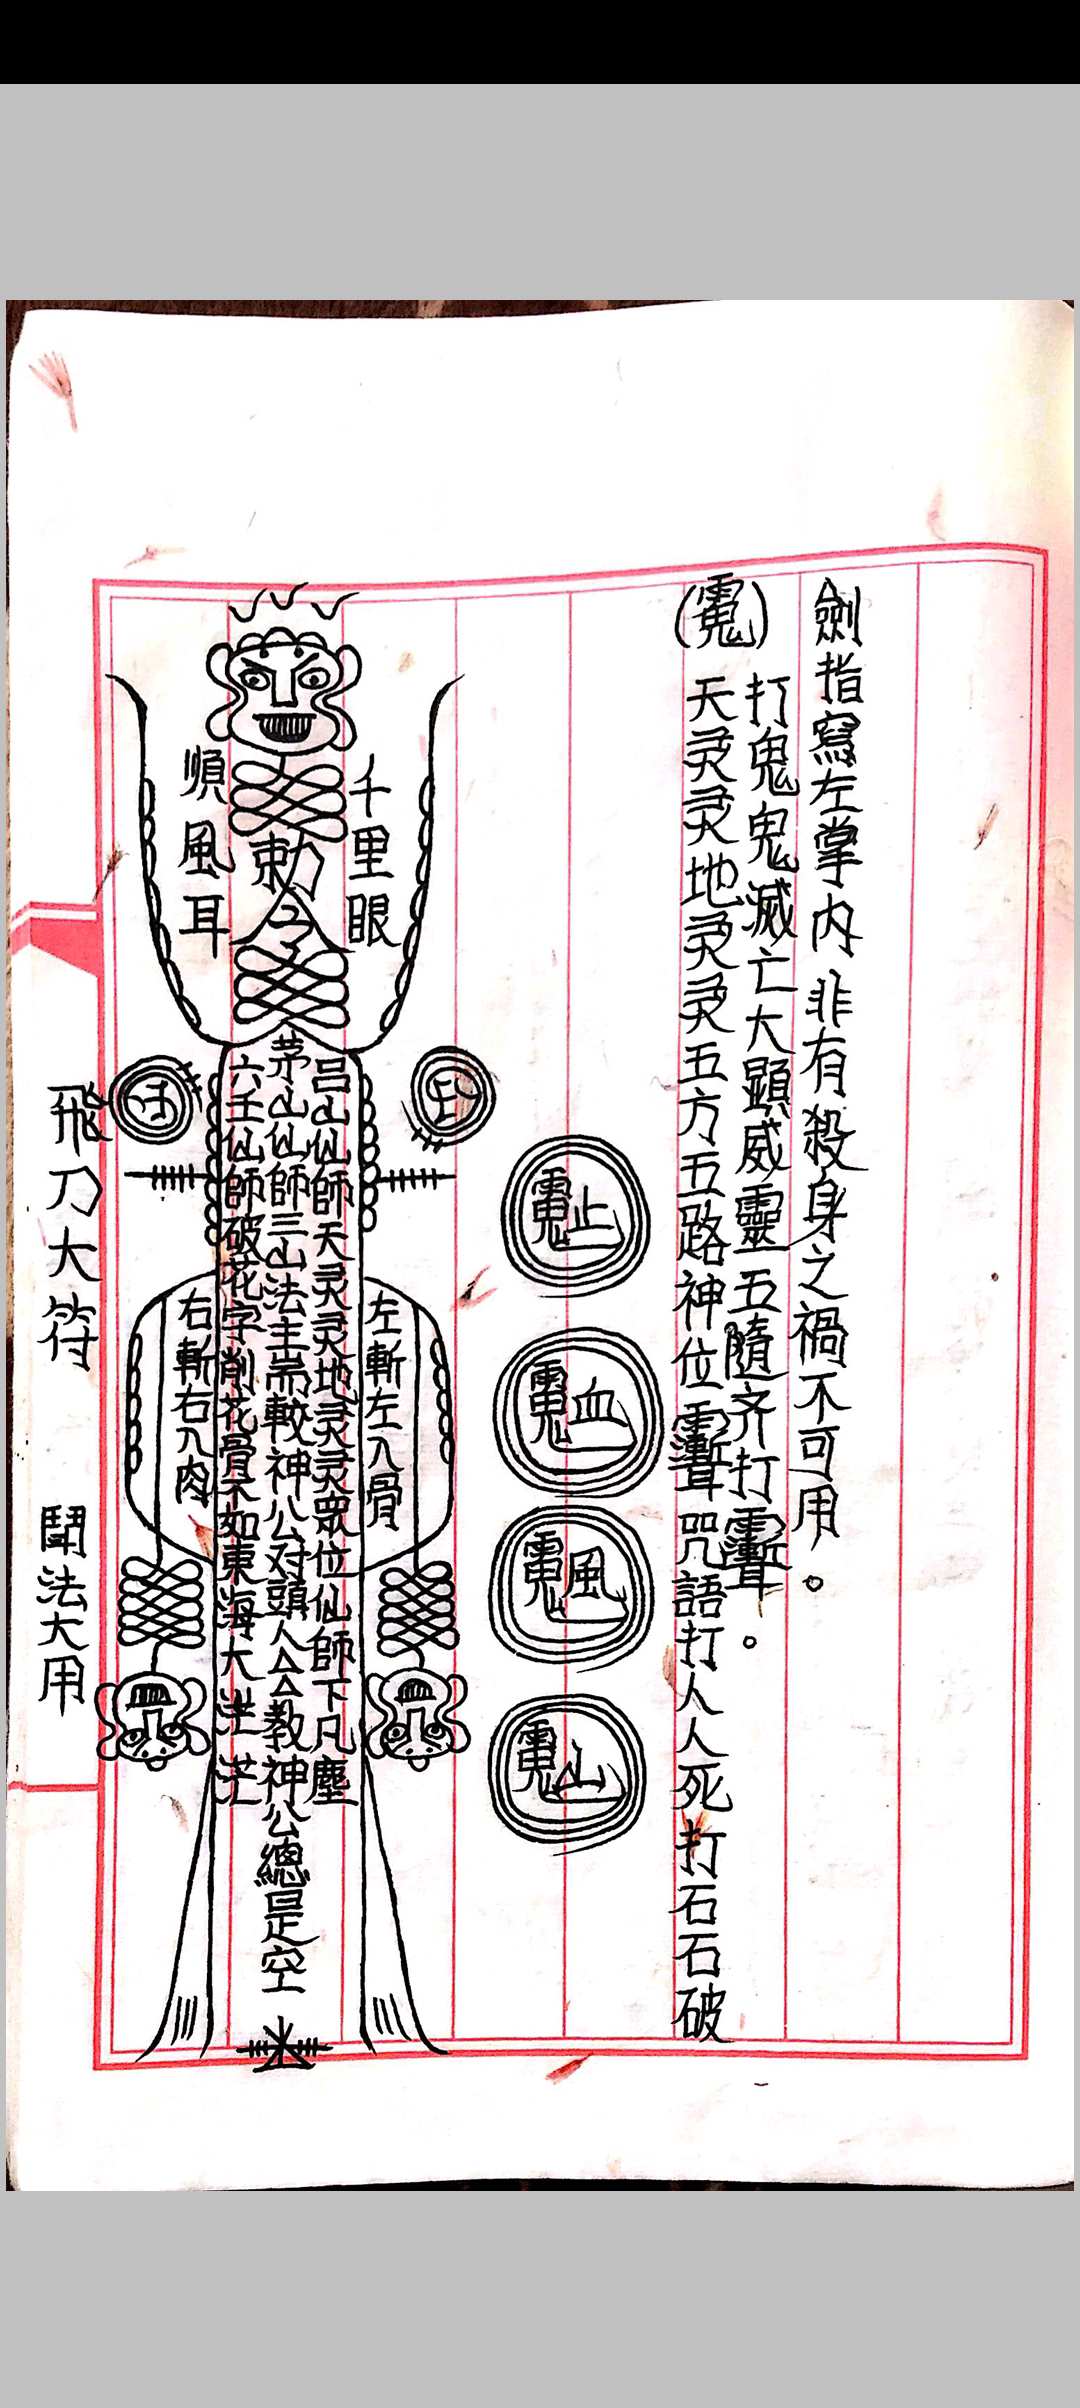 劍指寫左掌內非有殺身之禍不可用。
打鬼鬼滅亡大顯威靈五隨齐打
天灵灵地灵灵五方五路神位
咒語打人人死打石石破
止
血
風
山
千里眼
勅令
順風耳
吕山仙師天灵灵地灵灵眾位仙師下凡塵
茅山仙師三山法主
神公对頭人厶厶教神公總是空
六壬仙師破花字削花骨不如東海大茫茫
左斬左入骨
右斬右入肉
飛刀大符
鬪法大用